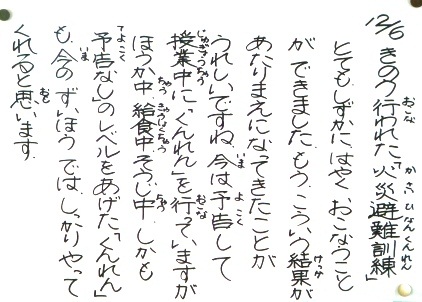 12/6 きのう行われた「火災避難訓練」
とてもしずかにはやくおこなうこと
ができました。もう、こういう結果が
あたりまえになってきたことが
うれしいですね。今は予告して
授業中に「くんれん」を行っていますが
ほうか中 給食中 そうじ中 しかも
「予告なし」のレベルをあげた「くんれん」
も、今のずいほうでは、しっかりやって
くれると思います。